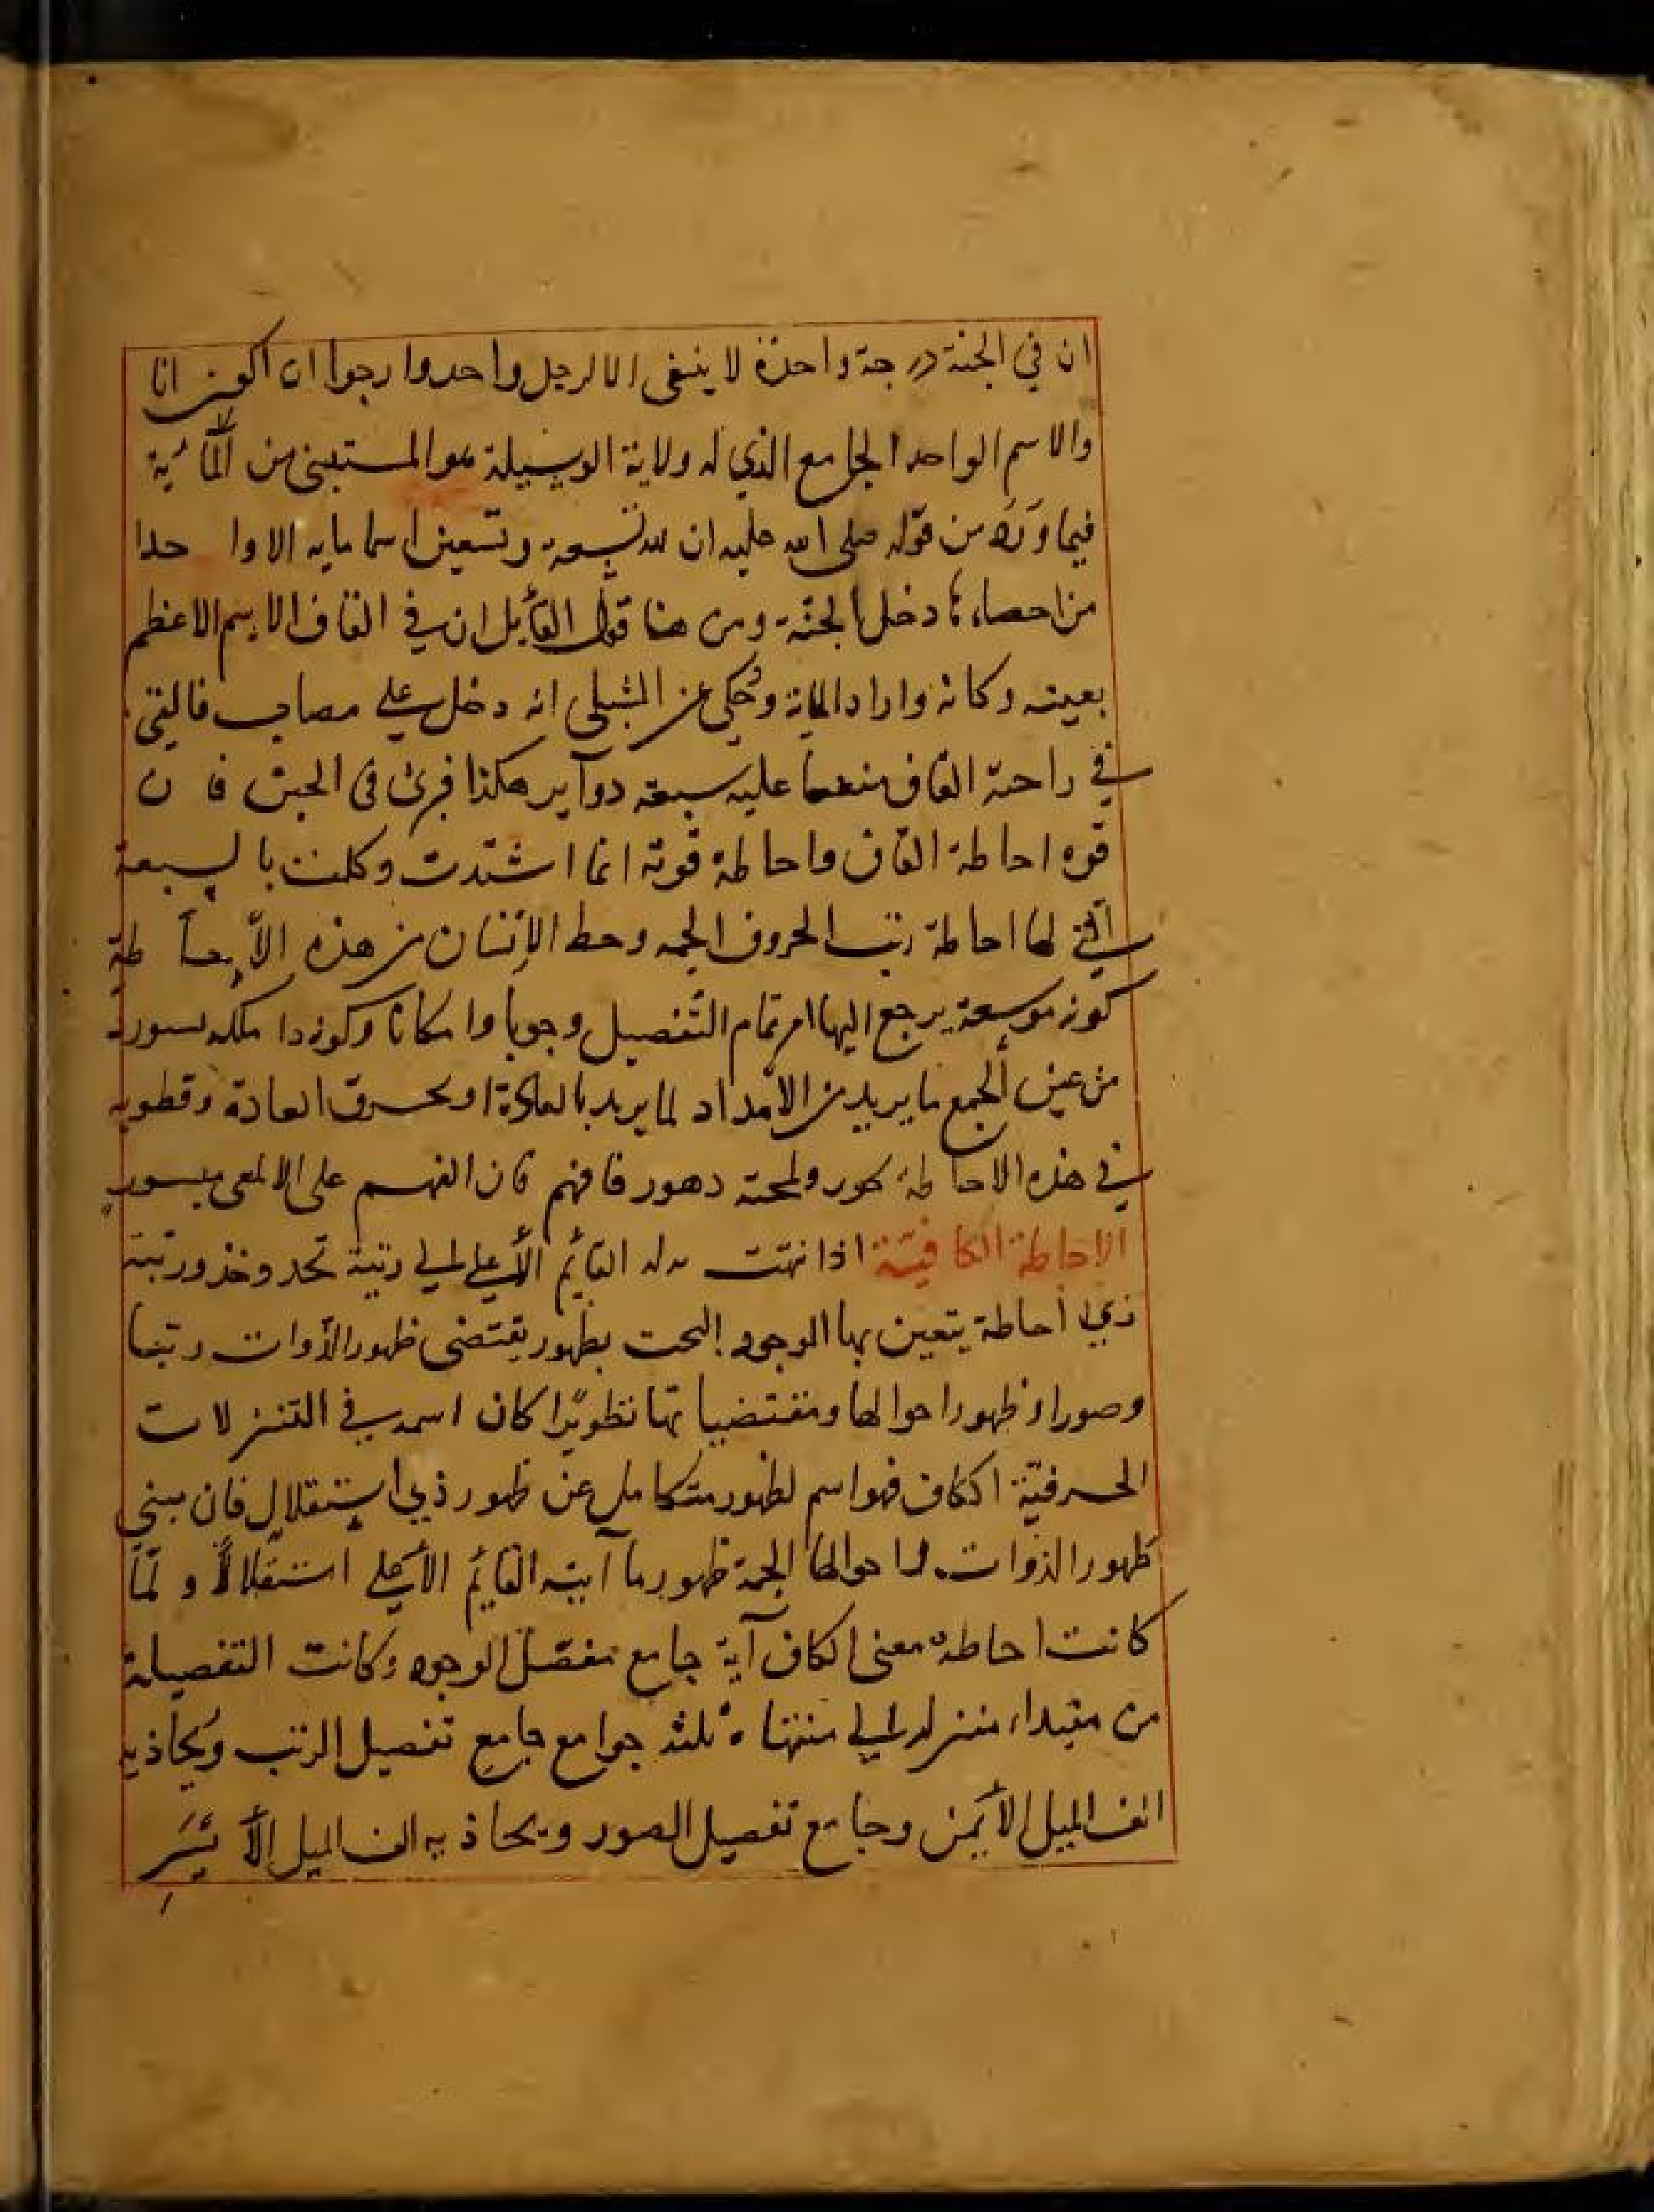 ان في الجنة درجة واحدة لا ينبغى الا لرجل واحد وارجوا ان اكون انا
والاسم الواحد الجامع الذي له ولاية الوسيلة هو المستبنى من المأية
فيما ورد من قوله صلى الله عليه ان لله تسعة وتسعين اسما مايه الا واحدا
من احصاها دخل الجنة ومن هنا قول القأيل ان في القاف الاسم الاعظم
بعينه وكانه واراد الماية وحكي عن الشبلى انه دخل على مصاب فالقى
في راحته القاف منعما عليه سبعة دوآير هكذا فرئ فى الحبس فان
قوه احاطة القاف واحاطة قوته انما اشتدت وكلت بالسبعة
التي لها احاطة رتب الحروف الجمه وحط الإنسان من هذه الأحاطة
كونه موسعة يرجع اليها امر تمام التفصيل وجوبا وامكانا وكونه ذا ملكه
من عين الجمع ما يريد من الامداد لما يريد بالعادة او بخرق العادة وقطوبه
في هذه الاحاطة كور ولمحته دهور فافهم فان الفهم على الالمعى ميسور
الاحاطة الكافيّة اذا نهت القأيم الأعلى الى رتبة تحد وخذ ورتبة
ذي احاطة يتعين بها الوجود البحت بظهور يقتضى ظهور الذوات رتبها
وصورا وظهور احوالها ومقتضياتها تطويرًا كان اسمه في التنزلات
الحرفيّة الكاف فهو اسم لظهور متكامل عن ظهور ذي استقلال فان مبنى
ظهور الذوات واحوالها الجمة ظهور ما آيته القأيم الأعلى استقلالاً و لمّا
كانت احاطة معنى الكاف آية جامع مفصّل الوجود وكانت التفصيلة
من مبتداء منزله الى منتهاه ثلثة جوامع جامع تفصيل الرتب ويحاذيه
الف الميل الأيمن وجامع تفصيل الصور ويحاذيه الف الميل الأيسر